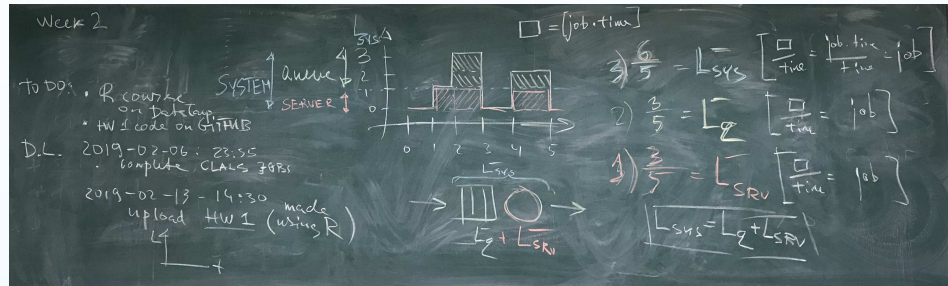 Week 2
TO DO:
• R course
on DataCamp
• HW1 code on GITHUB
D.L. 2019-02-06: 23:55
• complete
2019-02-13 - 14:30
upload HW1 (made using R)
L
t
SYSTEM
queue
SERVER
L sys
3
2
1
0
0 1 2 3 4 5
□ = [job·time]
L sys
Lq + L SRV
3) 6/5 = L sys [□/time = job·time/time = job]
2) 3/5 = Lq [□/time = job]
1) 3/5 = L SRV [□/time = job]
L sys = Lq + L SRV